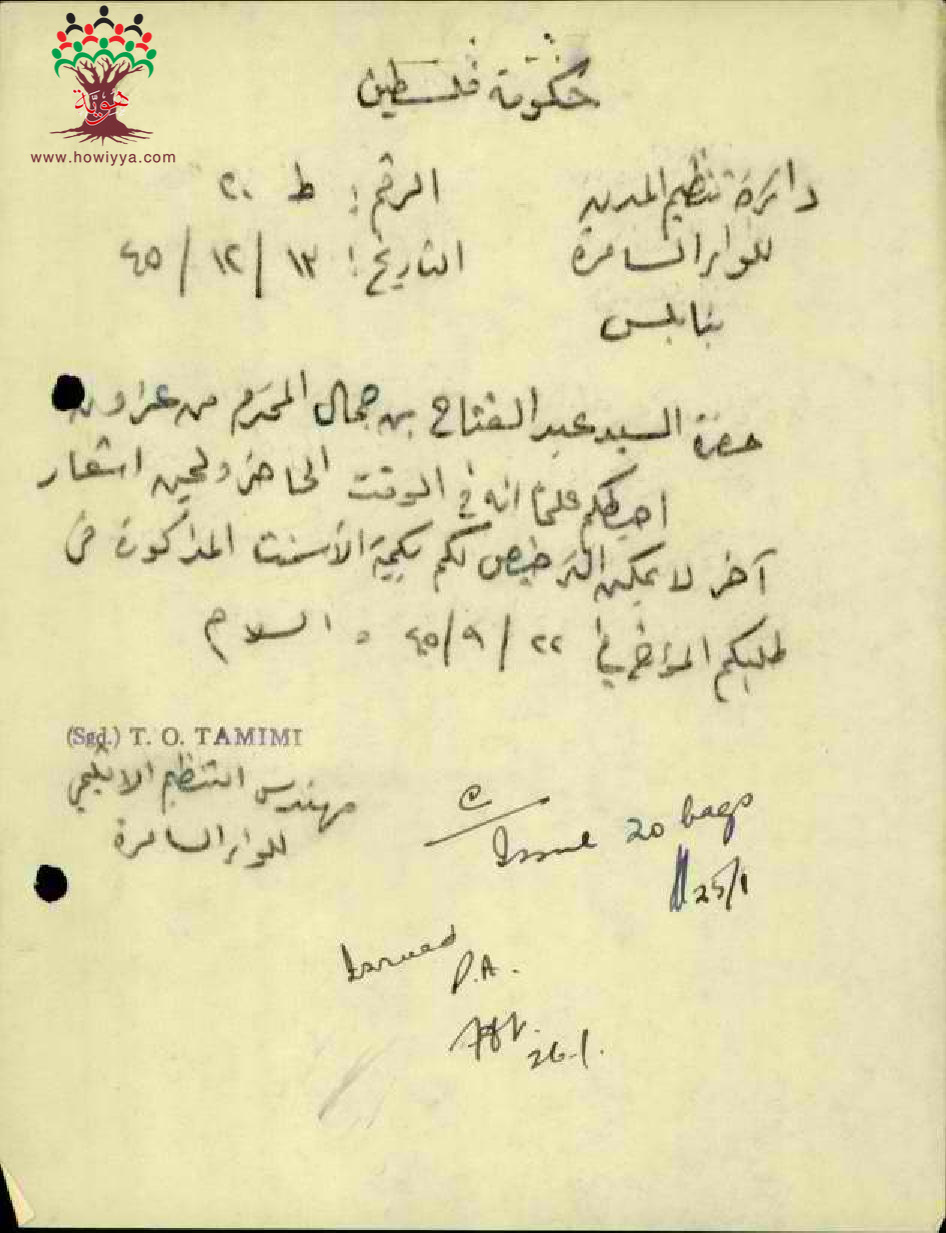 هوية
www.howiyya.com
حكومة فلسطين
دائرة تنظيم المدن
الرقم: ط ٢٠
للواء السامرة
التاريخ: ١٣ / ١٢ / ٤٥
بنابلس
حضرة السيد عبد الفتاح بن جمال المحترم من عزون
احيطكم علما انه في الوقت الحاضر ولحين اشعار
آخر لا يمكن الترخيص لكم بكمية الأسمنت المذكورة في
طلبكم المؤرخ في ٢٢ / ٩ / ٤٥ والسلام
(Sgd.) T. O. TAMIMI
مهندس التنظيم الاقليمي
للواء السامرة
Issue 20 bags
25/1
Issued
P.A.
26/1.